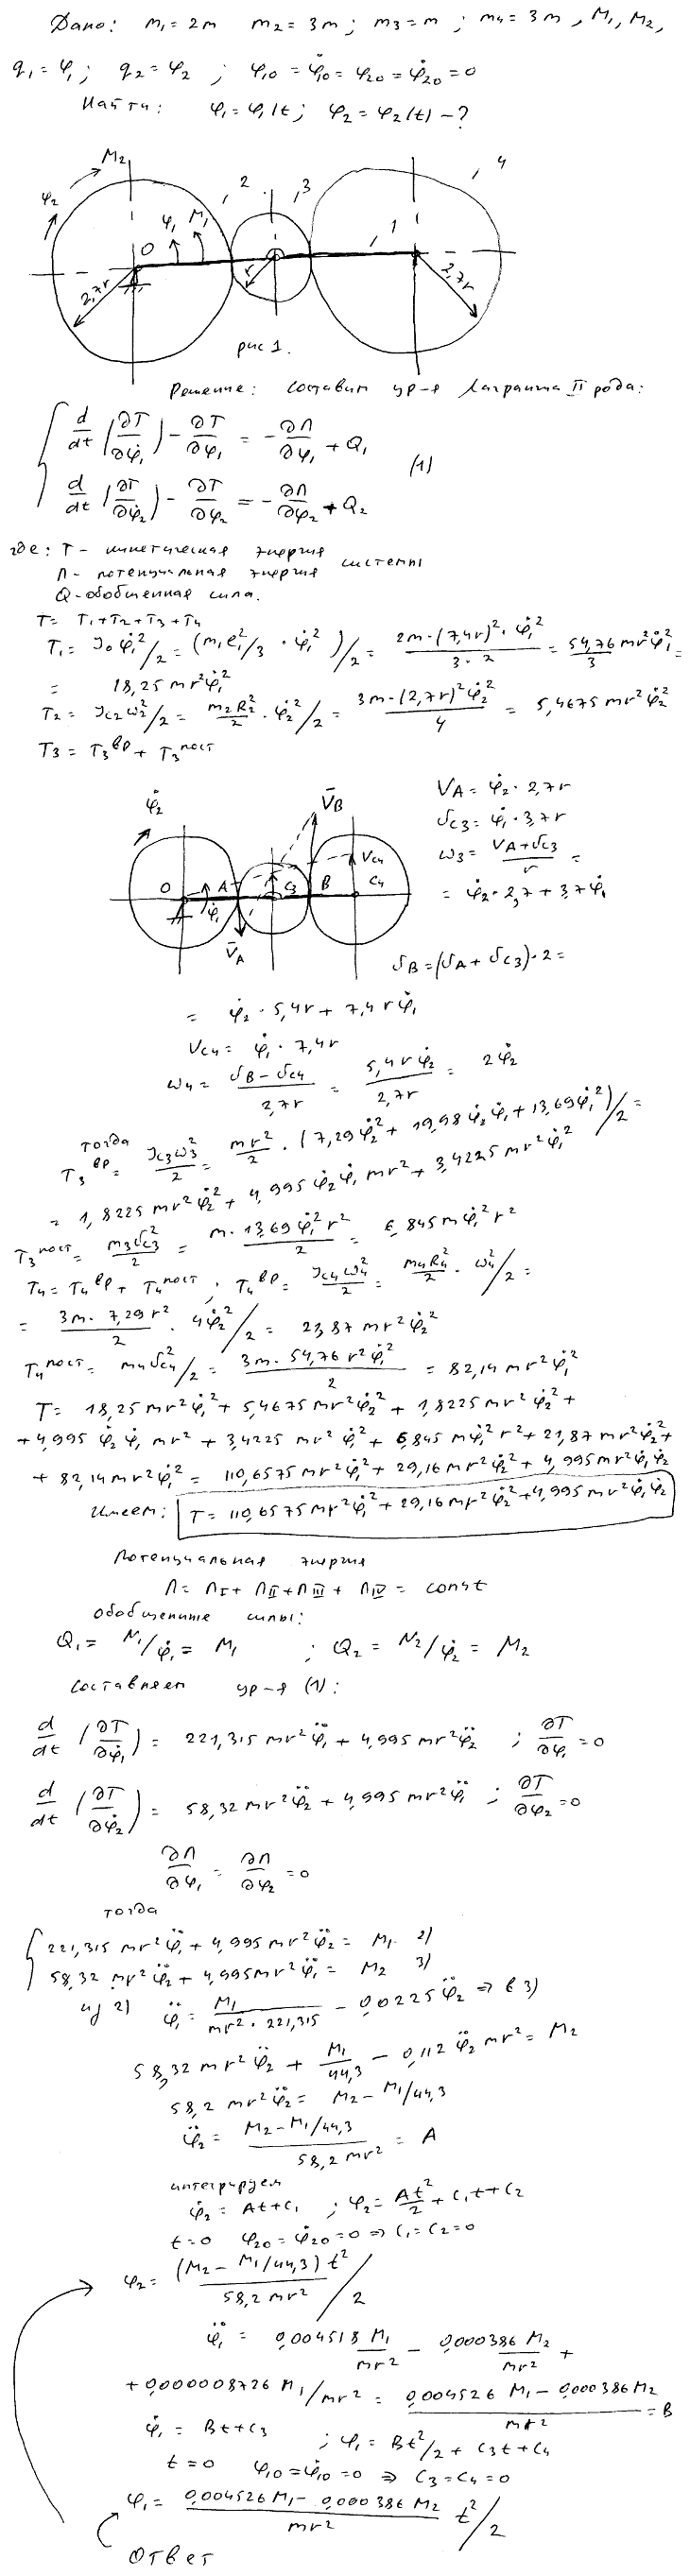 Дано: m₁ = 2m m₂ = 3m; m₃ = m; m₄ = 3m, M₁, M₂,
q₁ = φ₁; q₂ = φ₂; φ₁₀ = φ̇₁₀ = φ₂₀ = φ̇₂₀ = 0
Найти: φ₁ = φ₁(t; φ₂ = φ₂(t) - ?
M₂
φ₂ 2 3 4
O φ₁ M₁ 1
2,7r r 2,7r
рис 1.
Решение: составим ур-я Лагранжа II рода:
d/dt (∂T/∂φ̇₁) - ∂T/∂φ₁ = -∂П/∂φ₁ + Q₁
(1)
d/dt (∂T/∂φ̇₂) - ∂T/∂φ₂ = -∂П/∂φ₂ + Q₂
где: T - кинетическая энергия
П - потенциальная энергия системы
Q - обобщенная сила.
T = T₁ + T₂ + T₃ + T₄
T₁ = J₀φ̇₁²/2 = (m₁ℓ²/3 · φ̇₁²)/2 = 2m·(7,4r)²·φ̇₁²/3·2 = 54,76/3 mr²φ̇₁² =
= 18,25 mr²φ̇₁²
T₂ = Jc₂ω₂²/2 = m₂R₂²/2 · φ̇₂²/2 = 3m·(2,7r)²φ̇₂²/4 = 5,4675 mr²φ̇₂²
T₃ = T₃ᵇᵖ + T₃ᵖᵒᶜᵗ
φ̇₂ V̄B
O A C₃ B C₄ Vc₄
φ̇₁ V̄A
VA = φ̇₂ · 2,7r
Vc₃ = φ̇₁ · 3,7r
ω₃ = VA + Vc₃/r =
= φ̇₂·2,7 + 3,7φ̇₁
VB = (VA + Vc₃)·2 =
= φ̇₂ · 5,4r + 7,4rφ̇₁
Vc₄ = φ̇₁ · 7,4r
ω₄ = VB - Vc₄/2,7r = 5,4rφ̇₂/2,7r = 2φ̇₂
тогда
T₃ᵇᵖ = Jc₃ω₃²/2 = mr²/2 · (7,29φ̇₂² + 19,98φ̇₂φ̇₁ + 13,69φ̇₁²)/2 =
= 1,8225 mr²φ̇₂² + 4,995φ̇₂φ̇₁ mr² + 3,4225 mr²φ̇₁²
T₃ᵖᵒᶜᵗ = m₃Vc₃²/2 = m·13,69φ̇₁²r²/2 = 6,845mφ̇₁²r²
T₄ = T₄ᵇᵖ + T₄ᵖᵒᶜᵗ; T₄ᵇᵖ = Jc₄ω₄²/2 = m₄R₄²/2 · ω₄²/2 =
= 3m·7,29r²/2 · 4φ̇₂²/2 = 23,87 mr²φ̇₂²
T₄ᵖᵒᶜᵗ = m₄Vc₄²/2 = 3m·54,76r²φ̇₁²/2 = 82,14 mr²φ̇₁²
T = 18,25 mr²φ̇₁² + 5,4675 mr²φ̇₂² + 1,8225 mr²φ̇₂² +
+ 4,995 φ̇₂φ̇₁ mr² + 3,4225 mr²φ̇₁² + 6,845 mφ̇₁²r² + 21,87 mr²φ̇₂² +
+ 82,14 mr²φ̇₁² = 110,6575 mr²φ̇₁² + 29,16 mr²φ̇₂² + 4,995 mr²φ̇₁φ̇₂
Имеем: T = 110,6575 mr²φ̇₁² + 29,16 mr²φ̇₂² + 4,995 mr²φ̇₁φ̇₂
Потенциальная энергия
П = ПI + ПII + ПIII + ПIV = const
обобщенные силы:
Q₁ = N₁/φ̇₁ = M₁; Q₂ = N₂/φ̇₂ = M₂
составляем ур-я (1):
d/dt (∂T/∂φ̇₁) = 221,315 mr²φ̈₁ + 4,995 mr²φ̈₂; ∂T/∂φ₁ = 0
d/dt (∂T/∂φ̇₂) = 58,32 mr²φ̈₂ + 4,995 mr²φ̈₁; ∂T/∂φ₂ = 0
∂П/∂φ₁ = ∂П/∂φ₂ = 0
тогда
221,315 mr²φ̈₁ + 4,995 mr²φ̈₂ = M₁ 2)
58,32 mr²φ̈₂ + 4,995mr²φ̈₁ = M₂ 3)
из 2) φ̈₁ = M₁/mr²·221,315 - 0,0225φ̈₂ ⇒ в 3)
58,32 mr²φ̈₂ + M₁/44,3 - 0,112φ̈₂mr² = M₂
58,2 mr²φ̈₂ = M₂ - M₁/44,3
φ̈₂ = M₂ - M₁/44,3/58,2 mr² = A
интегрируем
φ̇₂ = At + C₁; φ₂ = At²/2 + C₁t + C₂
t = 0 φ₂₀ = φ̇₂₀ = 0 ⇒ C₁ = C₂ = 0
φ₂ = (M₂ - M₁/44,3)t²/58,2 mr²/2
φ̈₁ = 0,004518 M₁/mr² - 0,000386 M₂/mr² +
+ 0,000008726 M₁/mr² = 0,004526 M₁ - 0,000386 M₂/mr² = B
φ̇₁ = Bt + C₃; φ₁ = Bt²/2 + C₃t + C₄
t = 0 φ₁₀ = φ̇₁₀ = 0 ⇒ C₃ = C₄ = 0
φ₁ = 0,004526 M₁ - 0,000386 M₂/mr² t²/2
Ответ